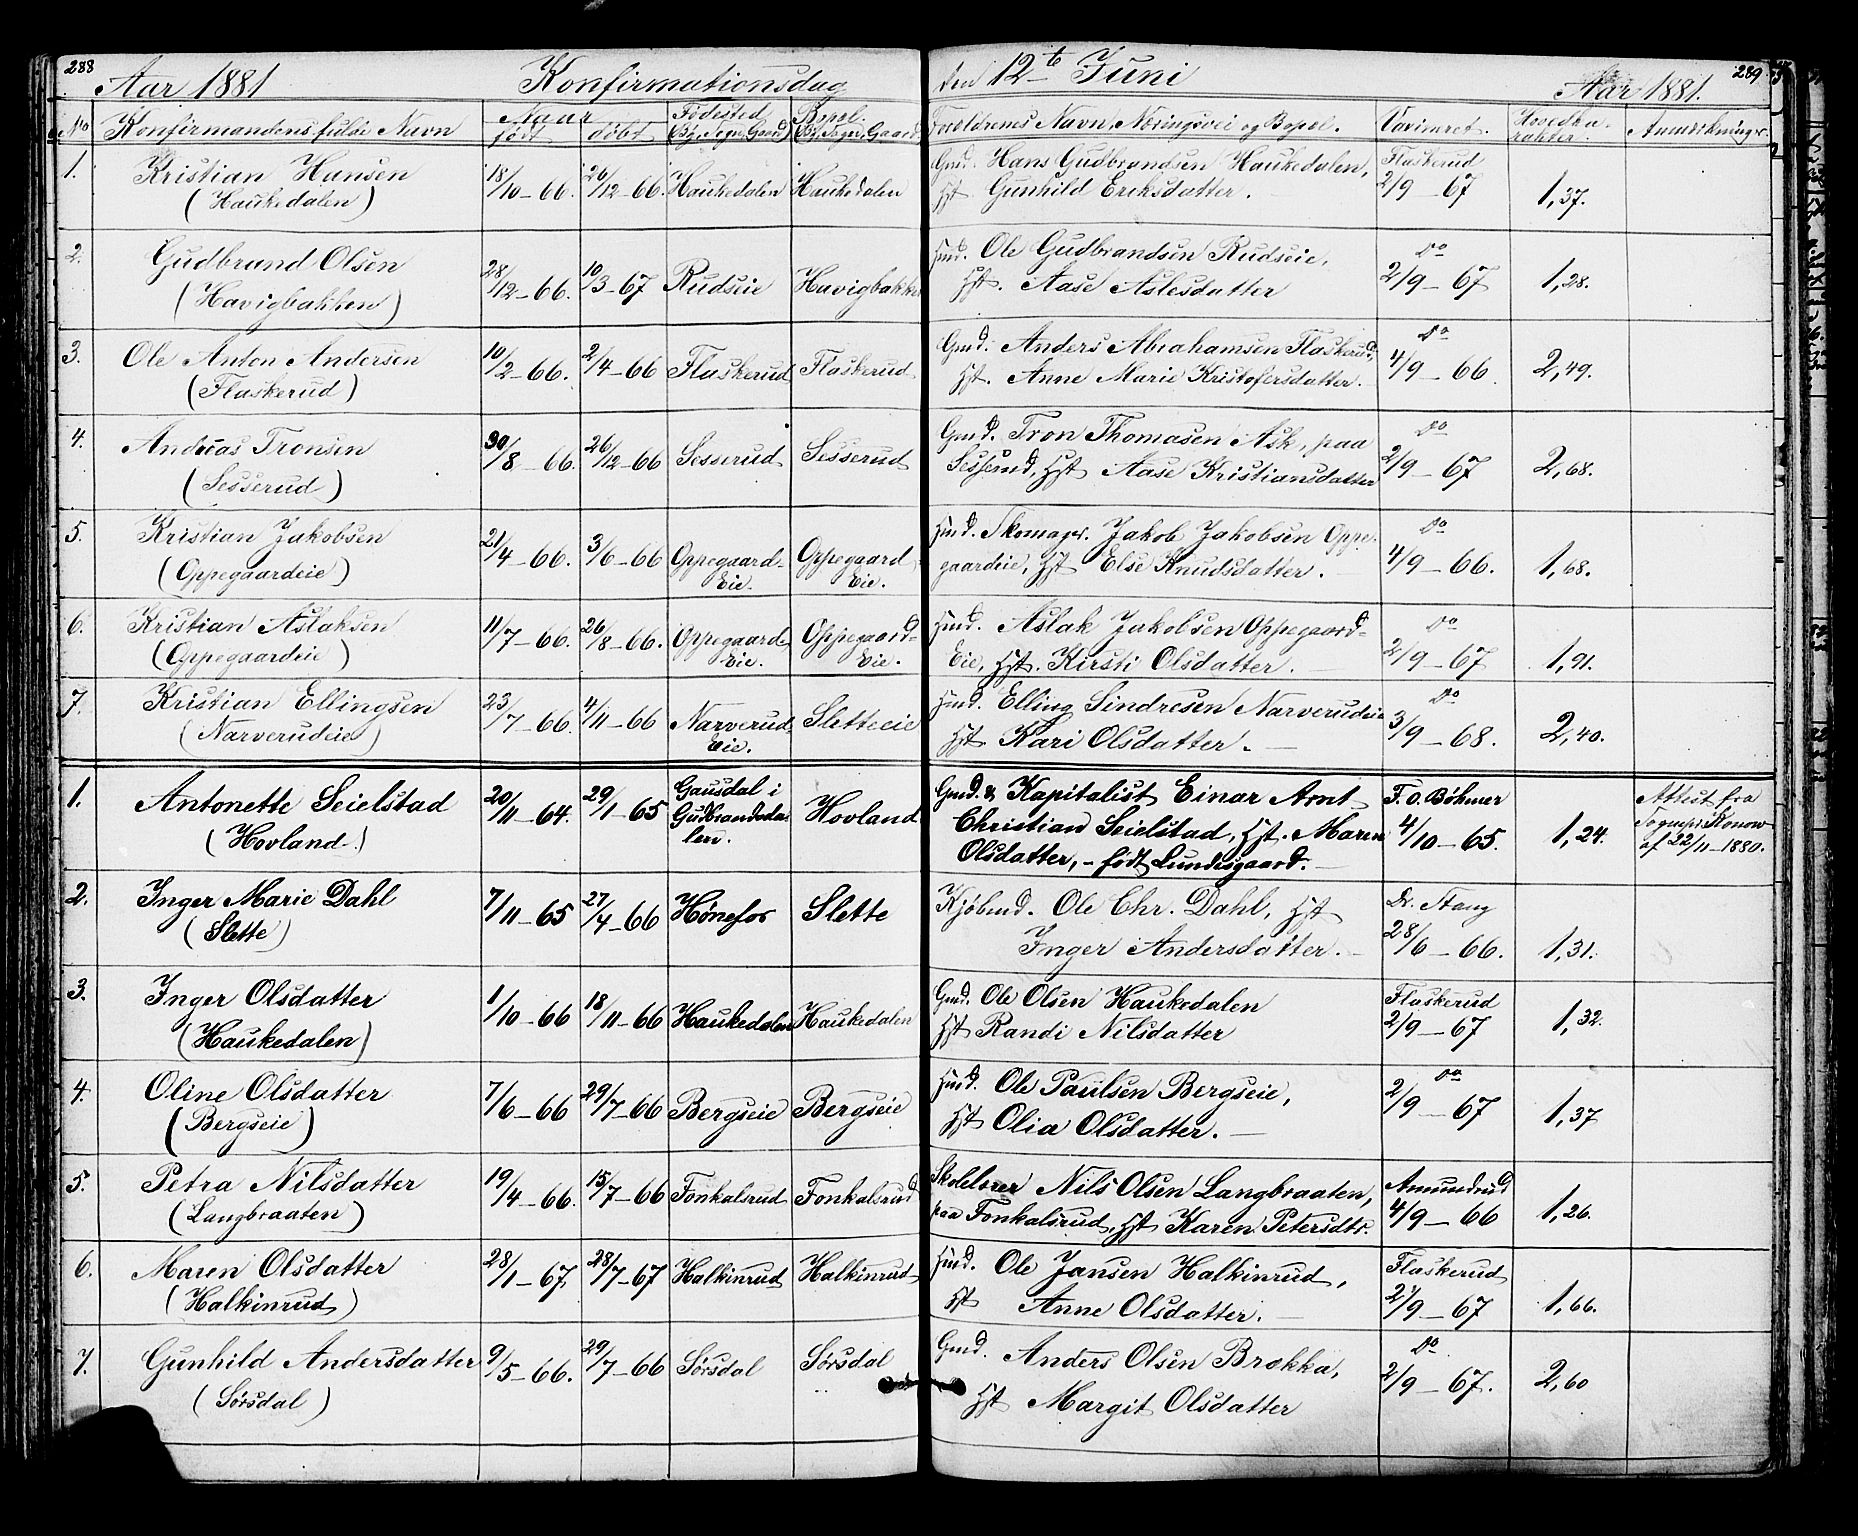 288
Aar 1881 Konfirmationsdag den 12te Juni Aar 1881. 289
No Konfirmandens fulde Navn Naar født døbt Fødested (By, Sogn, Gaard) Bopel. (By, Sogn, Gaard) Forældrenes Navn, Næringsvei og Bopel. Vaccineret. Hovedka-rakter. Anmærkninger.
1. Kristian Hansen 18/10-66. 26/12-66. Haukedalen Haukedalen Gmd. Hans Gudbrandsen Haukedalen, Flaskerud
(Haukedalen) Hst Gunhild Eriksdatter. 2/9-67 1,37.
2. Gudbrand Olsen 28/12-66. 10/3-67 Rudseie Havigbakken Hmd. Ole Gudbrandsen Rudseie, Do
(Havigbakken) Hst. Aase Aslesdatter 2/9-67 1,28.
3. Ole Anton Andersen 10/2-66. 2/4-66 Flaskerud Flaskerud Gmd. Anders Abrahamsen Flaskerud, Do
(Flaskerud) Hst. Anne Marie Kristofersdatter. 4/9-66. 2,49.
4. Andreas Tronsen 30/8-66. 26/12-66 Sesserud Sesserud Gmd. Tron Thomasen Ask, paa Do
(Sesserud) Sesserud, Hst Aase Kristiansdatter 2/9-67 2,68.
5. Kristian Jakobsen 21/4-66. 3/6-66 Oppegaard-Eie. Oppegaard-Eie. Hmd. Skomager. Jakob Jakobsen Oppe- Do
(Oppegaardeie) gaardeie, Hst Else Knudsdatter. 4/9-66. 1,68.
6. Kristian Aslaksen 11/7-66. 26/8-66. Oppegaard-Eie. Oppegaard-Eie. Hmd. Aslak Jakobsen Oppegaard- Do
(Oppegaardeie) Eie, Hst. Kirsti Olsdatter. 2/9-67 1,91.
7. Kristian Ellingsen 23/7-66. 4/11-66 Narverud-Eie. Sletteeie Hmd. Elling Sindresen Narverudeie Do
(Narverudeie) Hst Kari Olsdatter. 3/9-68. 2,40.
1. Antonette Seielstad 20/11-64. 29/1-65 Gausdal i Gudbrandsda-len. Hovland Gmd. & Kapitalist Einar Arnt F. O. Bøhmer Attest fra
(Hovland) Christian Seielstad, Hst. Maren 4/10-65. 1,24. Sognepr. Konow
Olsdatter, - født Lundesgaard. af 22/11-1880.
2. Inger Marie Dahl 7/11-65 27/4-66 Hønefos Slette Kjøbmd. Ole Chr. Dahl, Hst Dr. Stang
(Slette) Inger Andersdatter. 28/6-66. 1,31.
3. Inger Olsdatter 1/10-66 18/11-66 Haukedalen Haukedalen Gmd. Ole Olsen Haukedalen Flaskerud
(Haukedalen) Hst Randi Nilsdatter 2/9-67 1,32.
4. Oline Olsdatter 7/6-66 29/7-66 Bergseie Bergseie Hmd. Ole Paulsen Bergseie, Do
(Bergseie) Hst Olia Olsdatter. 2/9-67 1,37
5. Petra Nilsdatter 19/4-66. 15/7-66 Fonkalsrud Fonkalsrud Skolelærer Nils Olsen Langbraaten, Amundrud
(Langbraaten) paa Fonkalsrud, Hst Karen Petersdtr. 4/9-66 1,26.
6. Maren Olsdatter 28/1-67. 28/7-67 Halkinrud Halkinrud Hmd. Ole Jansen Halkinrud, Flaskerud
(Halkinrud) Hst Anne Olsdatter. 2/9-67 1,66.
7. Gunhild Andersdatter 9/5-66. 29/7-66 Sørsdal Sørsdal Gmd. Anders Olsen Brokka, Do
(Sørsdal) Hst Margit Olsdatter 2/9-67. 2,60